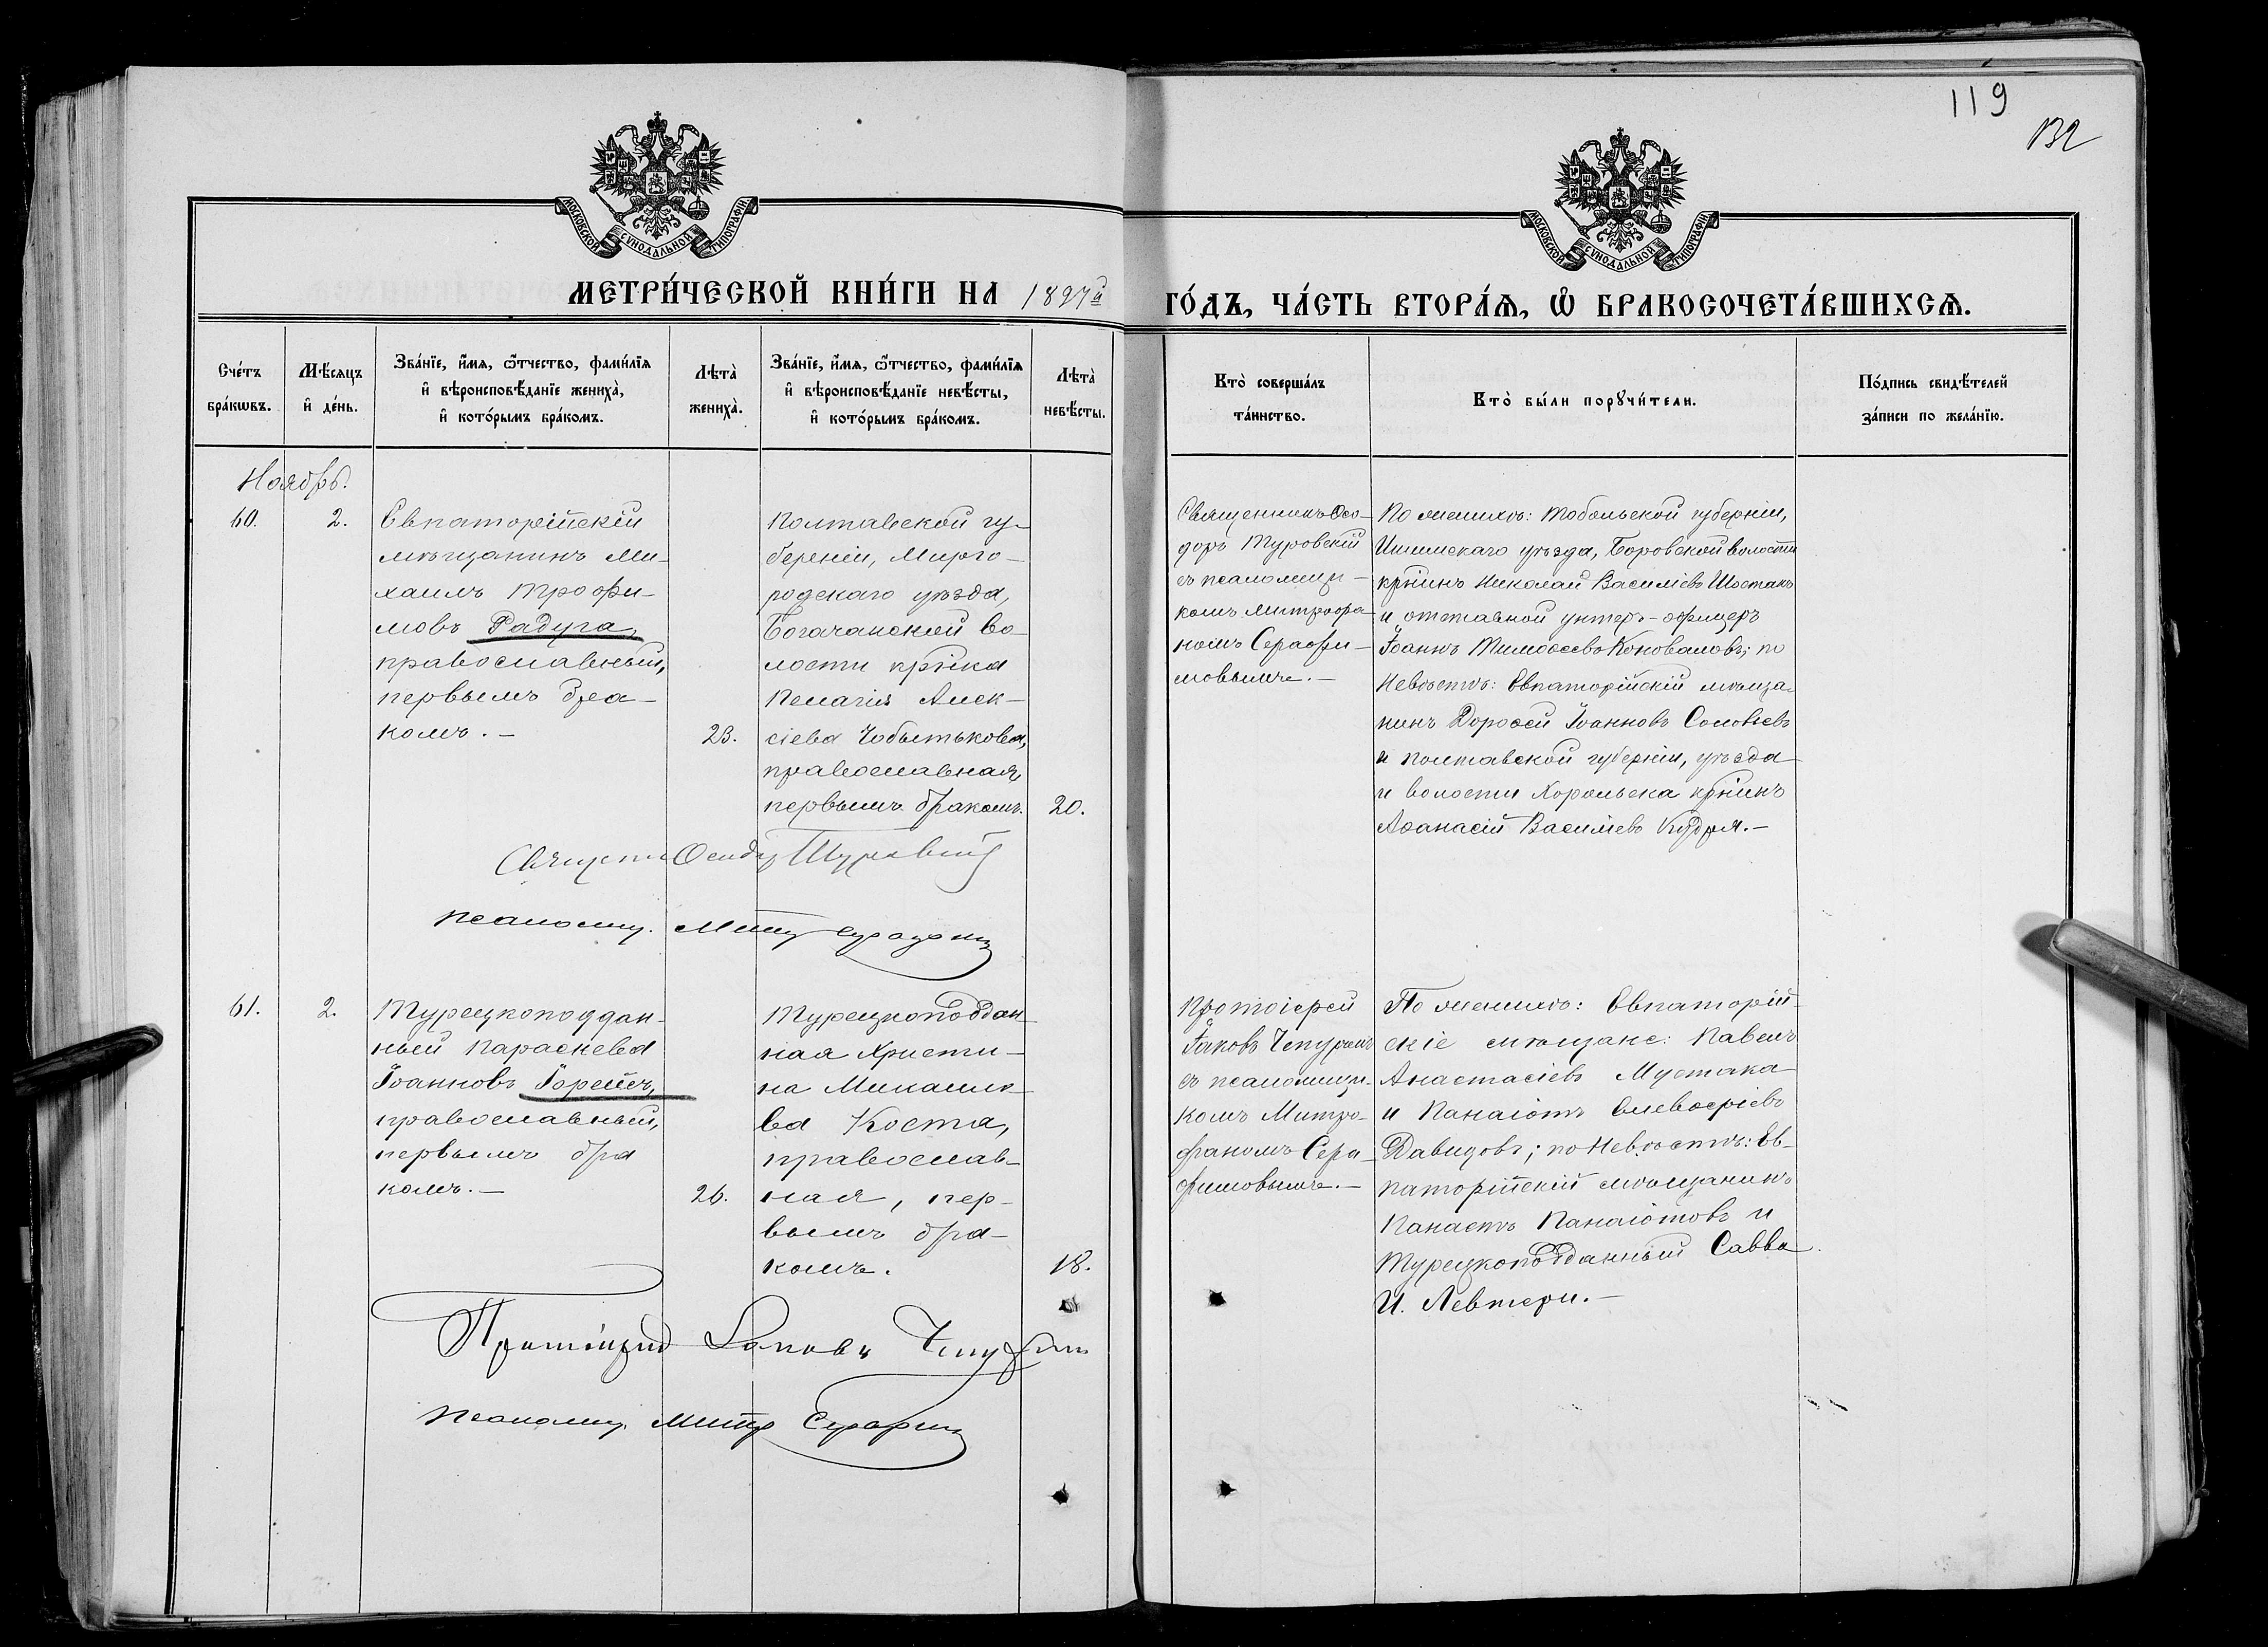 119
132
МОСКОВСКОЙ СѴНОДАЛЬНОЙ ТИПОГРАФІИ
МОСКОВСКОЙ СѴНОДАЛЬНОЙ ТИПОГРАФІИ
МЕТРИ́ЧЕСКОЙ КНИ́ГИ НА 1897й
ГО́ДЪ, ЧА́СТЬ ВТОРА́Ѧ, Ѡ҆ БРАКОСОЧЕТА́ВШИХСѦ.
Сче́тъ
бра́кѡвъ.
Мѣ́сяцъ
и҆ де́нь.
Зва́нїе, и҆́мѧ, ѻ҆́тчество, фами́лїѧ
и҆ вѣроисповѣ́данїе жениха̀,
и҆ кото́рымъ бра́комъ.
Лѣта̀
жениха̀.
Зва́нїе, и҆́мѧ, ѻ҆́тчество, фами́лїѧ
и҆ вѣроисповѣ́данїе невѣ́сты,
и҆ кото́рымъ бра́комъ.
Лѣта̀
невѣ́сты.
Кто̀ соверша́лъ
та́инство.
Кто̀ бы́ли порꙋчи́тели.
По́дпись свидѣ́телей
за́писи по жела́нїю.
Ноябрь.
60.
2.
Евпаторійскій
мѣщанинъ Ми-
хаилъ Трофи-
мовъ Радуга,
православный,
первымъ бра-
комъ.—
23.
Полтавской гу-
берніи, Мирго-
родскаго уѣзда,
Богачанской во-
лости крѣнка
Пелагія Алек-
сіева Чобытькова,
православная,
первымъ бракомъ.
20.
Священникъ Ѳео-
доръ Туровскій
съ псаломщи-
комъ Митрофа-
номъ Серафи-
мовымъ.—
По женихѣ: Тобольской губерніи,
Ишимскаго уѣзда, Боровской волости
крѣнинъ Николай Василіевъ Шостакъ
и отставной унтеръ-офицеръ
Іоаннъ Тимоѳеевъ Коноваловъ; по
Невѣстѣ: Евпаторійскій мѣща-
нинъ Дороѳей Іоанновъ Соловьевъ
и Полтавской губерніи, уѣзда
и волости Хорольска крѣнинъ
Аѳанасій Василіевъ Кудря.—
Священни Ѳеодор Туровскій
Псаломщ. Митр Серафим
61.
2.
Турецкоподдан-
ный Параскева
Іоанновъ Іорешъ,
православный,
первымъ бра
комъ.—
26.
Турецкоподдан-
ная Христи-
на Михаило-
ва Коста,
православ-
ная, пер-
вымъ бра-
комъ.
18.
Протоіерей
Іаковъ Чепуринъ
съ псаломщи-
комъ Митро-
фаномъ Сера-
фимовымъ.—
По женихѣ: Евпаторій-
скіе мѣщане: Павелъ
Анастасіевъ Мустака
и Панаіотъ Елевѳеріевъ
Давидовъ; по Невѣстѣ: Ев-
паторійскій мѣщанинъ
Панаетъ Панаіотовъ и
Турецкоподданный Савва
И. Левтери.—
Протоіерей Іаковъ Чепурин
Псаломщ. Митр Серафим